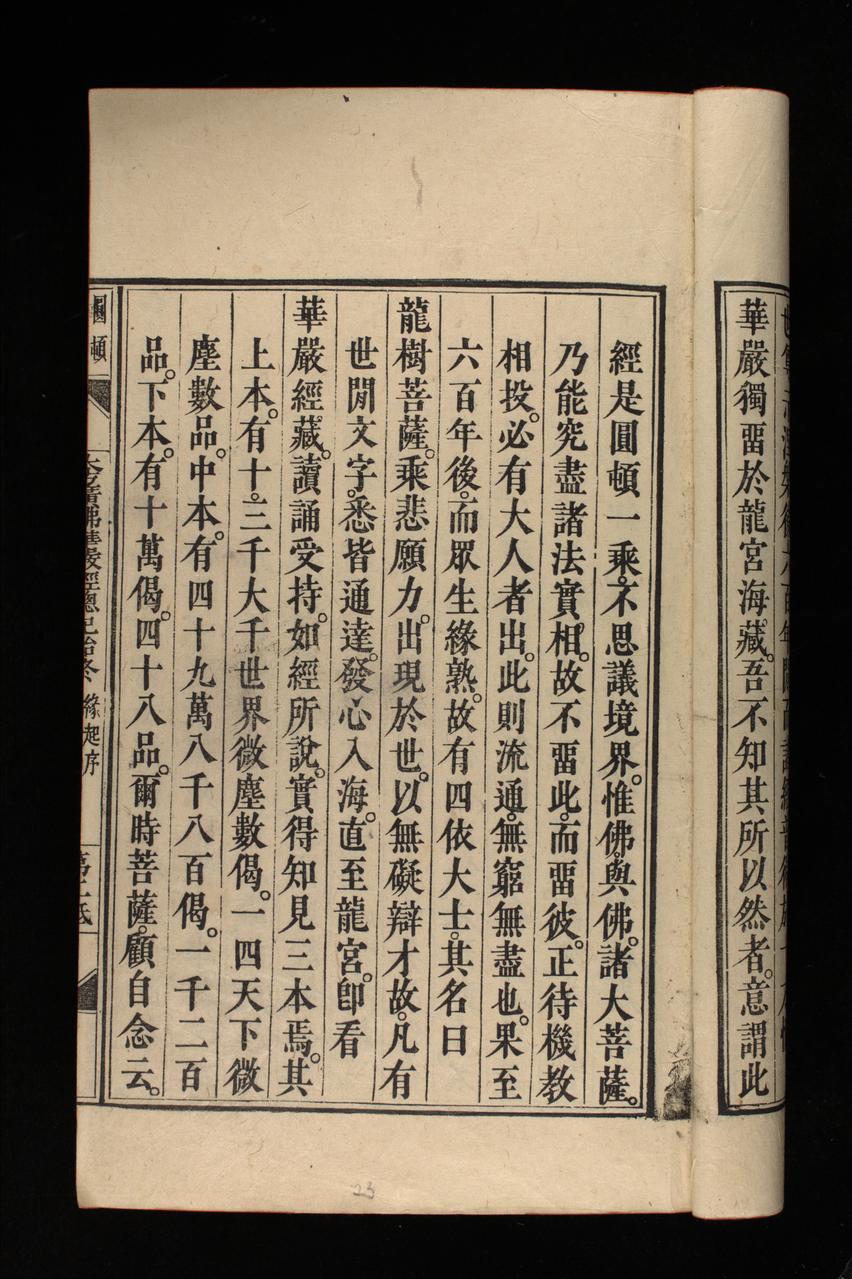 華嚴獨畱於龍宮海藏。吾不知其所以然者。意謂此
經是圓頓一乘。不思議境界。惟佛與佛。諸大菩薩。
乃能究盡諸法實相。故不畱此。而畱彼。正待機教
相投。必有大人者出。此則流通。無窮無盡也。果至
六百年後。而眾生緣熟。故有四依大士。其名曰
龍樹菩薩。乘悲願力。出現於世。以無礙辯才故。凡有
世閒文字。悉皆通達。發心入海。直至龍宮。卽看
華嚴經藏。讀誦受持。如經所說。實得知見三本焉。其
上本。有十。三千大千世界微塵數偈。一四天下微
塵數品。中本。有四十九萬八千八百偈。一千二百
品。下本。有十萬偈。四十八品。爾時菩薩。顧自念云。
圓頓
大方廣佛華嚴經總記始終 緣起序